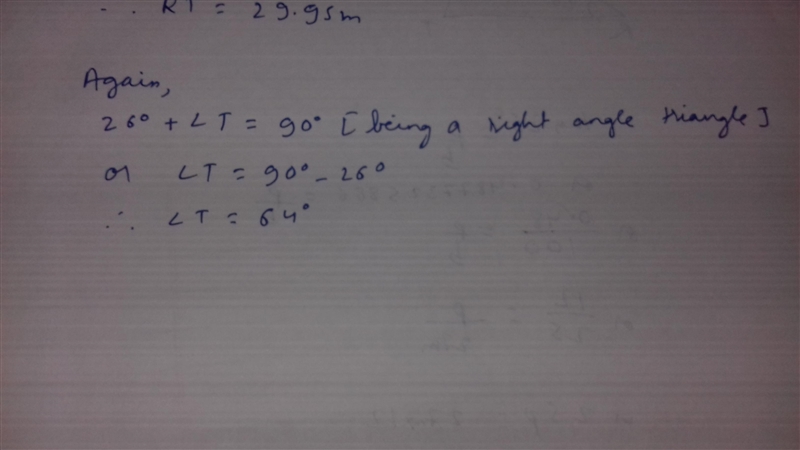 ∴ RT = 29.95m
Again,
26° + ∠T = 90° [being a right angle triangle]
or ∠T = 90° - 26°
∴ ∠T = 64°